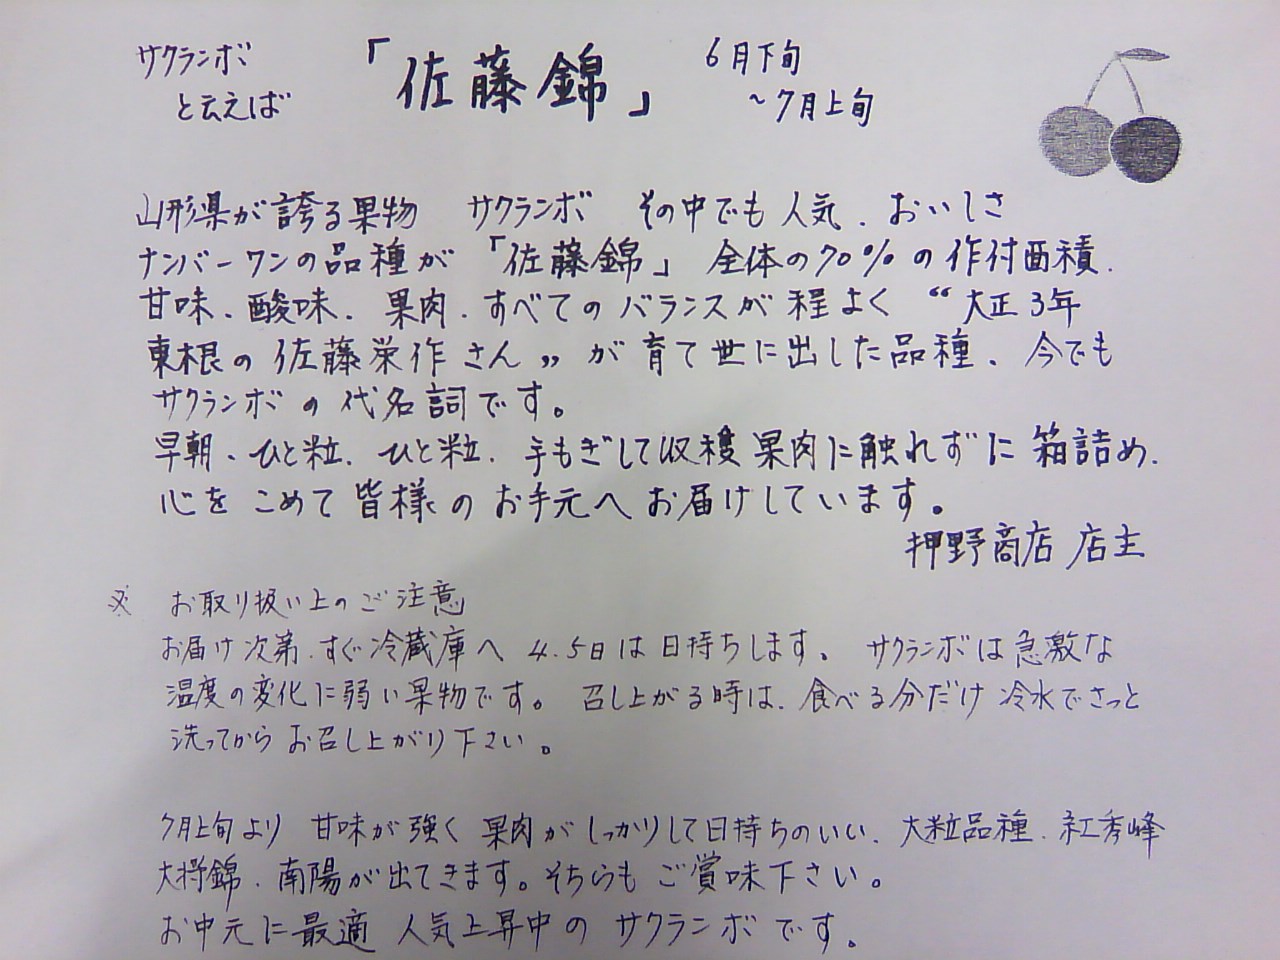 サクランボ
と云えば
「佐藤錦」
6月下旬
~7月上旬
山形県が誇る果物 サクランボ その中でも人気、おいしさ
ナンバーワンの品種が「佐藤錦」 全体の70%の作付面積、
甘味、酸味、果肉、すべてのバランスが程よく “大正3年
東根の佐藤栄作さん”が育て世に出した品種、今でも
サクランボの代名詞です。
早朝、ひと粒、ひと粒、手もぎして収穫 果肉に触れずに箱詰め、
心をこめて皆様のお手元へお届けしています。
押野商店 店主
※ お取り扱い上のご注意
お届け次第、すぐ冷蔵庫へ 4.5日は日持ちします。 サクランボは急激な
温度の変化に弱い果物です。 召し上がる時は、食べる分だけ冷水でさっと
洗ってからお召し上がり下さい。
7月上旬より 甘味が強く果肉がしっかりして日持ちのいい、大粒品種、紅秀峰
大将錦、南陽が出てきます。そちらもご賞味下さい。
お中元に最適 人気上昇中のサクランボです。